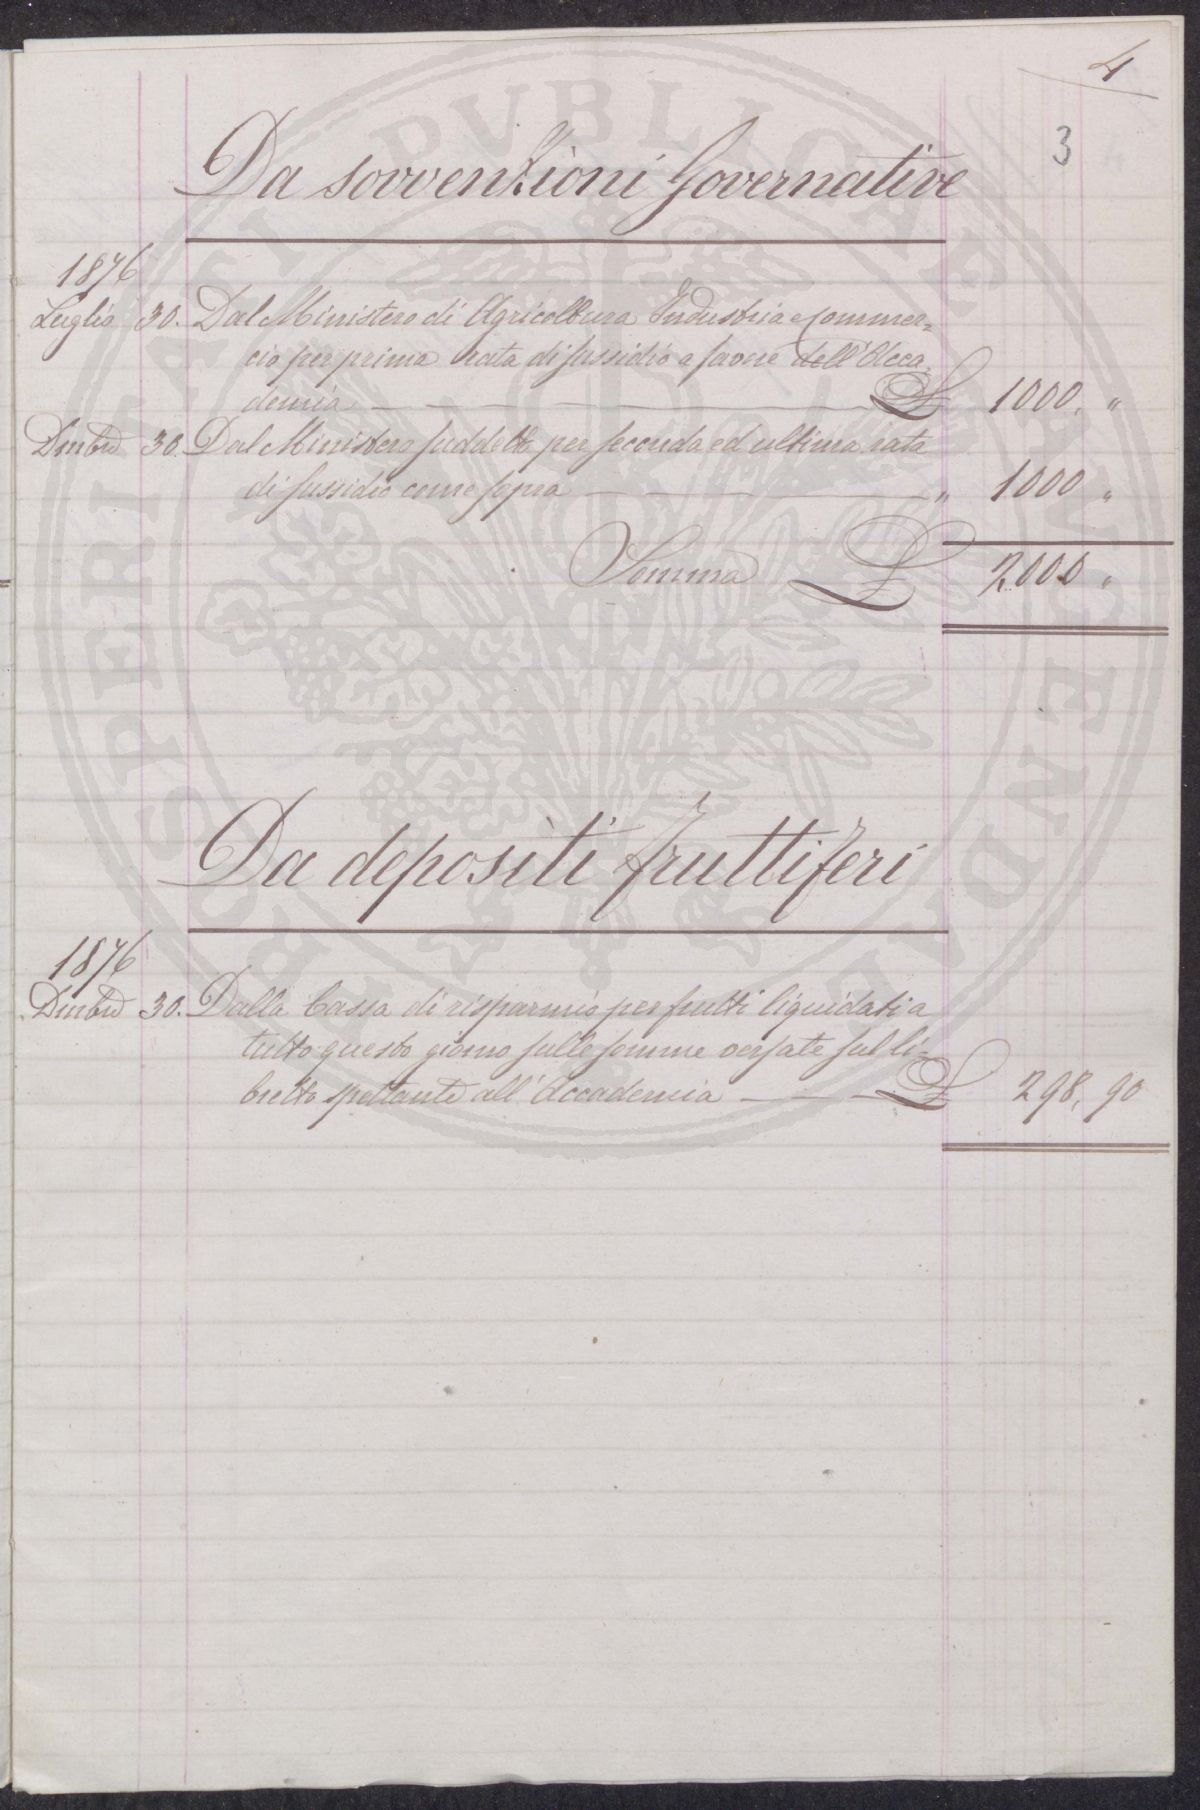 4
3
Da sovvenzioni Governative
1876
Luglio 30. Dal Ministero di Agricoltura Industria e Commer=
cio per prima rata di sussidio a favore dell'Acca=
demia £ 1000, "
Dmbre 30. Dal Ministero suddetto per seconda ed ultima rata
di sussidio come sopra " 1000 "
Somma £ 2000 "
Da depositi fruttiferi
1876
Dmbre 30. Dalla Cassa di risparmio per frutti liquidati a
tutto questo giorno sulle somme versate sul li=
bretto spettante all'Accademia £ 298, 90
PROSPERITATI PVBLICAE AVGENDAE